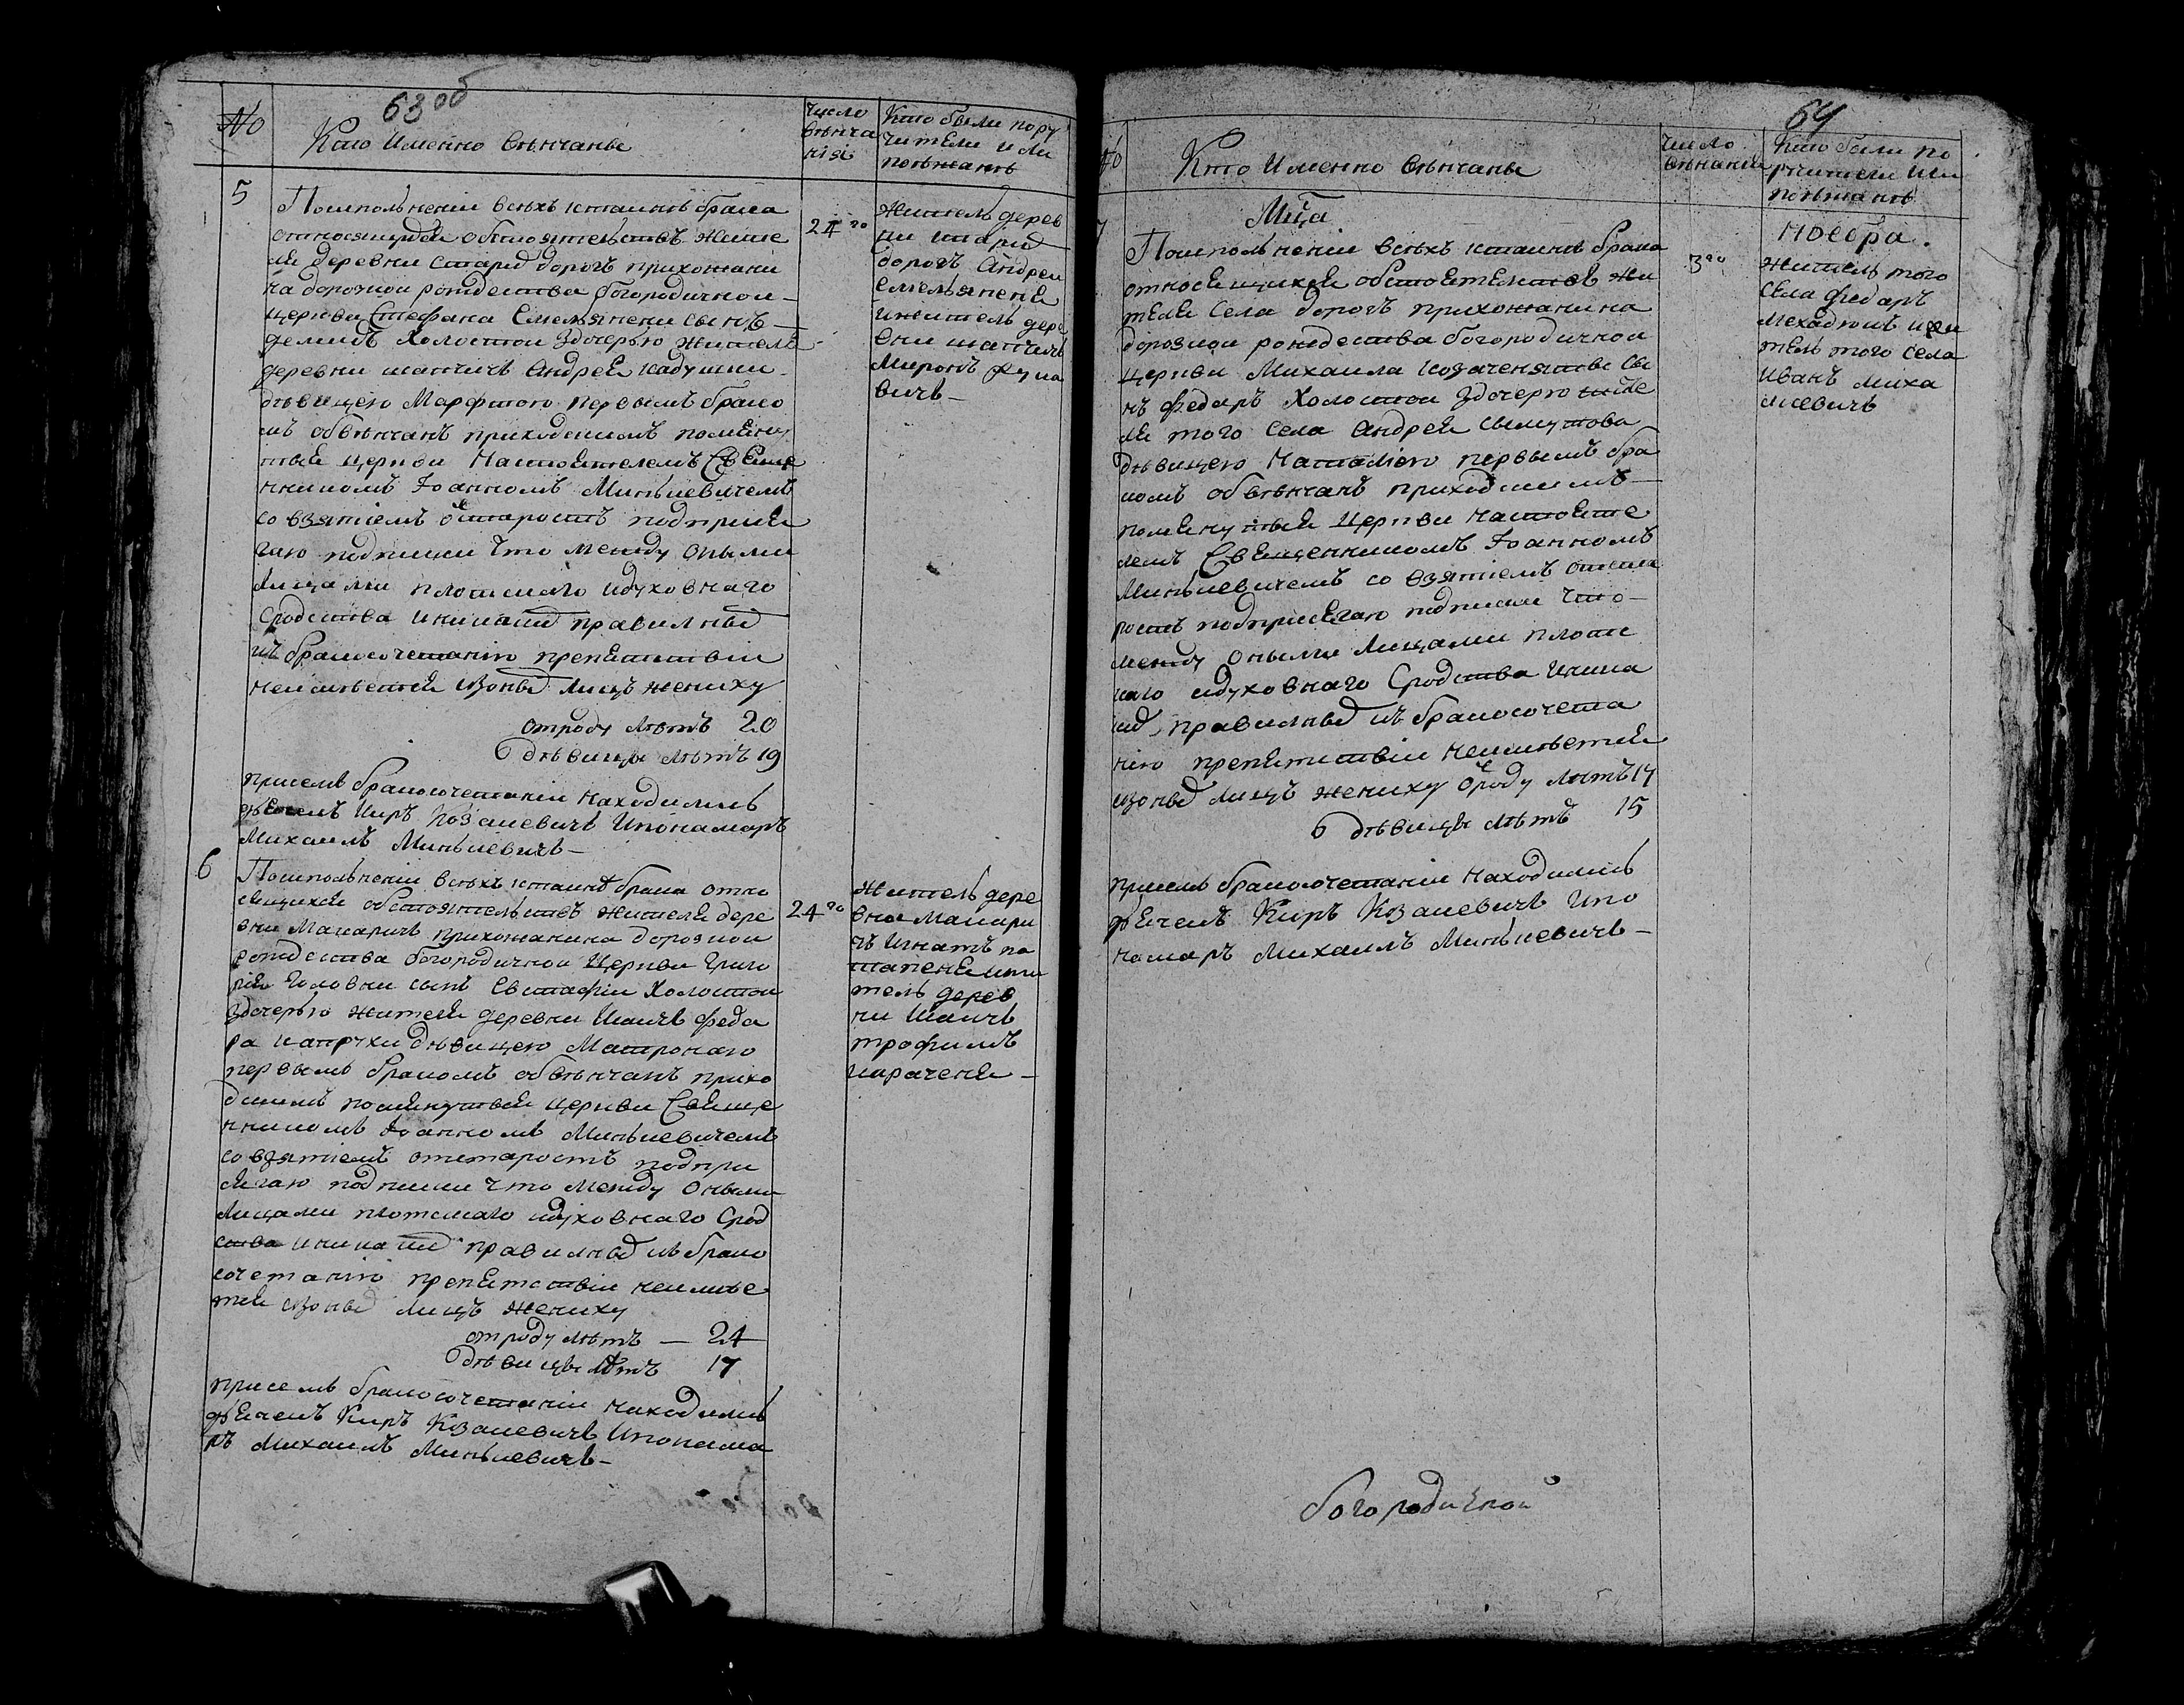 63 об
№
Кто Именно Вѣнчаны
Число
Вѣнча
нія
Кто были пору
чители или
поѣжанѣ
5
По исполненіи всѣхъ къ таинѣ брака
относящихся обстоятельствъ жите
ля деревни Стары дорогъ прихожани
на дорозкой рождества богородичной
церкви Стефана Емельянени сынъ
демидъ Холостой здочерью жителя
деревни шапчичъ Андрея кадушки
дѣвицею Марфтою первымъ брако
мъ обвѣнчанъ приходскимъ помяну
тыя церкви Настоятелемъ Свяще
нникомъ Іоанномъ Минькевичемъ
со взятіемъ отстаростъ подприся
гаю подписки что между оными
лицами плотскаго идуховнаго
Сродства иникакихъ правилныхъ
къ бракосочетанію препятствіи
неимѣется изоныхъ лицъ жениху
отроду лѣтъ 20
дѣвицы лѣтъ 19
присемъ бракосочетаніи находились
дьячекъ Киръ Козакевичъ Ипонамаръ
Михаилъ Минькевичъ
24го
Житель дерев
ни стары
дорогъ Андреи
Емельяненя
Ижитель дере
вни шапчичъ
Миронъ
вичъ
6
По исполненіи всѣхъ къ таинѣ брака отно
сящихся обстоятельствъ жителя дере
вни Макаричъ прихожанина дорозкои
рождества богородичной церкви Григо
рія Головни сынъ Евстафіи Холостои
здочерью жителя деревни Шаичъ федо
ра дѣвицею Матроною
первымъ бракомъ обвѣнчанъ прихо
дскимъ помянутыя церкви Свяще
нникомъ Іоанномъ Минькевичемъ
со взятіемъ отстаростъ подпри
сягаю подписки что между оными
лицами плотскаго идуховнаго Срод
ства иникакихъ правилныхъ къ брако
сочетанію препятствіи неимѣе
тся изоныхъ лицъ жениху
отроду лѣтъ — 24
дѣвицы лѣтъ 17
присемъ бракосочетаніи находились
дьячекъ Киръ Козакевичъ Ипонама
ръ Михаилъ Минькевичъ
24го
Житель дере
вни Макари
чъ Игнатъ по
тапеня ижи
тель дерев
ни Шаичъ
трофимъ
карачения
64
№
Кто Именно Вѣнчаны
Число
Вѣнчанія
Кто были по
ручители или
поѣжанѣ
Мца
Ноебра.
7
По исполненіи всѣхъ къ таинѣ брака
относящихся обстоятелствъ жи
теля села дорогъ прихожанина
дорозкои рождества богородичной
церкви Михаила сы
нъ федаръ Холостои здочерю жите
ля того села Андрея
дѣвицею Наталіею первымъ бра
комъ обвѣнчанъ приходскимъ
помянутыя церкви настояте
лемъ Священникомъ Іоанномъ
Минькевичемъ со взятіемъ отста
ростъ подприсягаю подписки что
между оными лицами плотс
каго идуховнаго Сродства иника
кихъ правилныхъ къ бракосочета
нію препятствіи неимѣется
изоныхъ лицъ жениху отроду лѣтъ 17
дѣвицы лѣтъ 15
присемъ бракосочетаніи находились
дьячекъ Киръ Козакевичъ Ипо
намаръ Михаилъ Минькевичъ
3го
Житель того
села федаръ
ижи
тель того села
Иванъ Миха
лкевичъ
богородичной